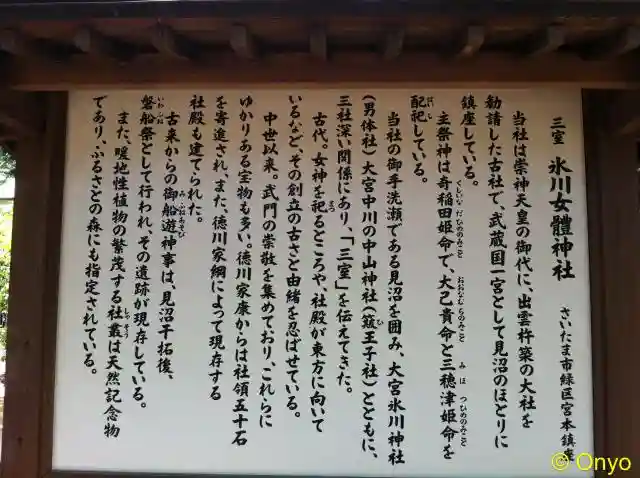 三室 氷川女體神社
さいたま市緑区宮本鎮座
当社は崇神天皇の御代に、出雲杵築の大社を
勧請した古社で、武蔵国一宮として見沼のほとりに
鎮座している。
主祭神は奇稲田姫命で、大己貴命と三穂津姫命を
配祀している。
当社の御手洗瀬である見沼を囲み、大宮氷川神社
(男体社)大宮中川の中山神社(簸王子社)とともに、
三社深い関係にあり、「三室」を伝えてきた。
古代。女神を祀るところや、社殿が東方に向いて
いるなど、その創立の古さと由緒を忍ばせている。
中世以来。武門の崇敬を集めており、これらに
ゆかりある宝物も多い。徳川家康からは社領五十石
を寄進され、また、徳川家綱によって現存する
社殿も建てられた。
古来からの御船遊神事は、見沼干拓後、
磐船祭として行われ、その遺跡が現存している。
また、暖地性植物の繁茂する社叢は天然記念物
であり、ふるさとの森にも指定されている。
© Onyo